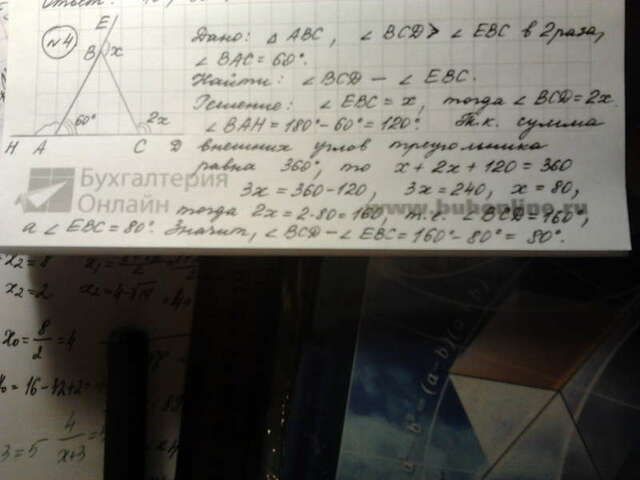 Ответ:
№4
E
B x
60°
2x
H A C D
Дано: △ ABC, ∠ BCD > ∠ EBC в 2 раза,
∠ BAC = 60°.
Найти: ∠ BCD — ∠ EBC.
Решение: ∠ EBC = x, тогда ∠ BCD = 2x.
∠ BAH = 180° - 60° = 120°. Т.к. сумма
внешних углов треугольника
равна 360°, то x + 2x + 120 = 360
3x = 360 - 120, 3x = 240, x = 80,
тогда 2x = 2 · 80 = 160, т.е. ∠ BCD = 160°,
а ∠ EBC = 80°. Значит, ∠ BCD - ∠ EBC = 160° - 80° = 80°.
Бухгалтерия
Онлайн
www.buhonline.ru
x2 = 8
x2 = 2
x0 = 8/2 = 4
= 16 - 42 + 2 =
3 = 5 4/x+3